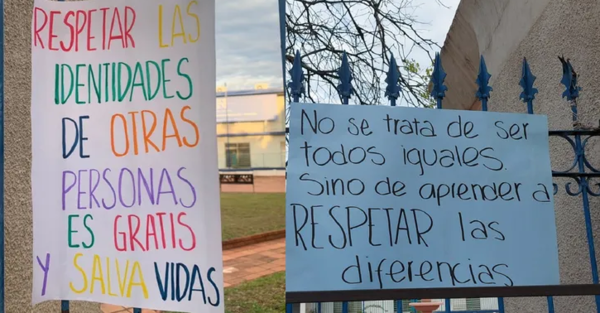 RESPETAR LAS
IDENTIDADES
DE OTRAS
PERSONAS
ES GRATIS
Y SALVA VIDAS
No se trata de ser
todos iguales.
Sino de aprender a
RESPETAR las
diferencias